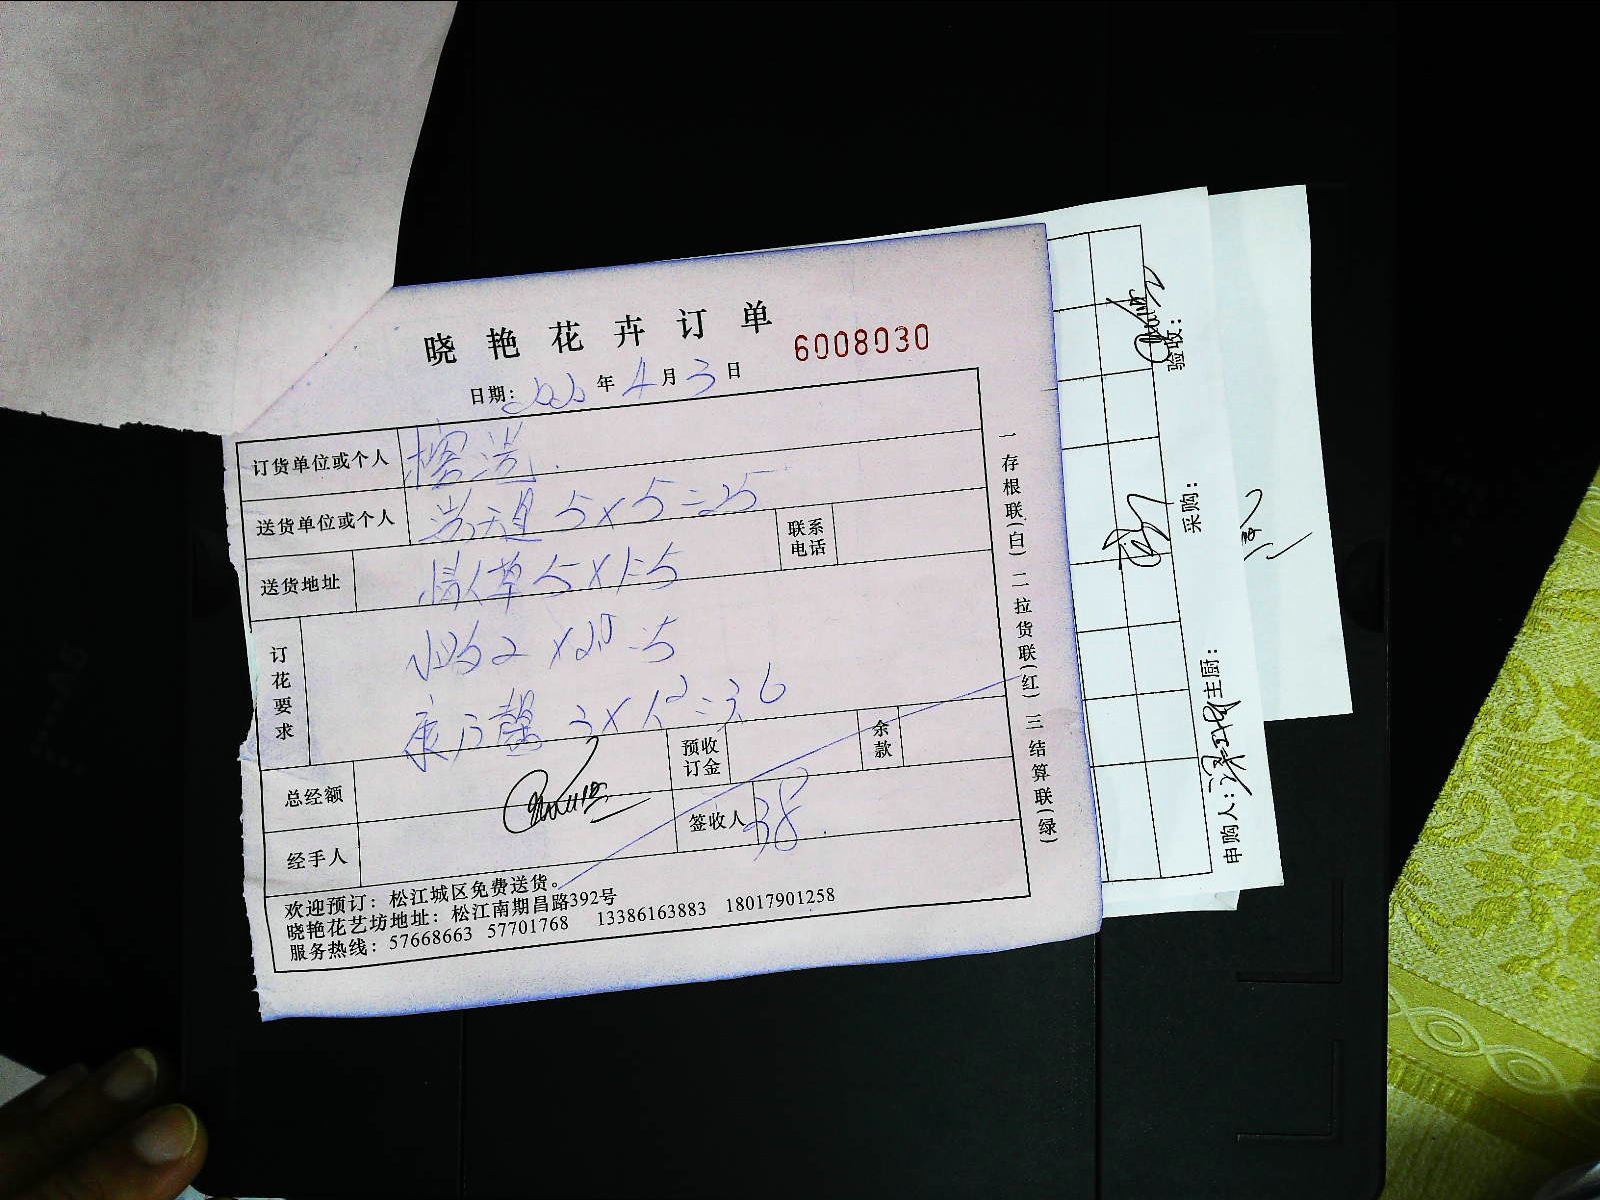 晓艳花卉订单
6008030
日期: 年 4 月 3 日
订货单位或个人
送货单位或个人 5×5=25
联系电话
送货地址 情人草 5×1=5
订花要求
康乃馨 3×12=36
总经额
预收订金
余款
经手人
签收人 38
欢迎预订：松江城区免费送货。
晓艳花艺坊地址：松江南期昌路392号
服务热线：57668663 57701768 13386163883 18017901258
一存根联(白) 二拉货联(红) 三结算联(绿)
验收：
采购：
主厨：
申购人：